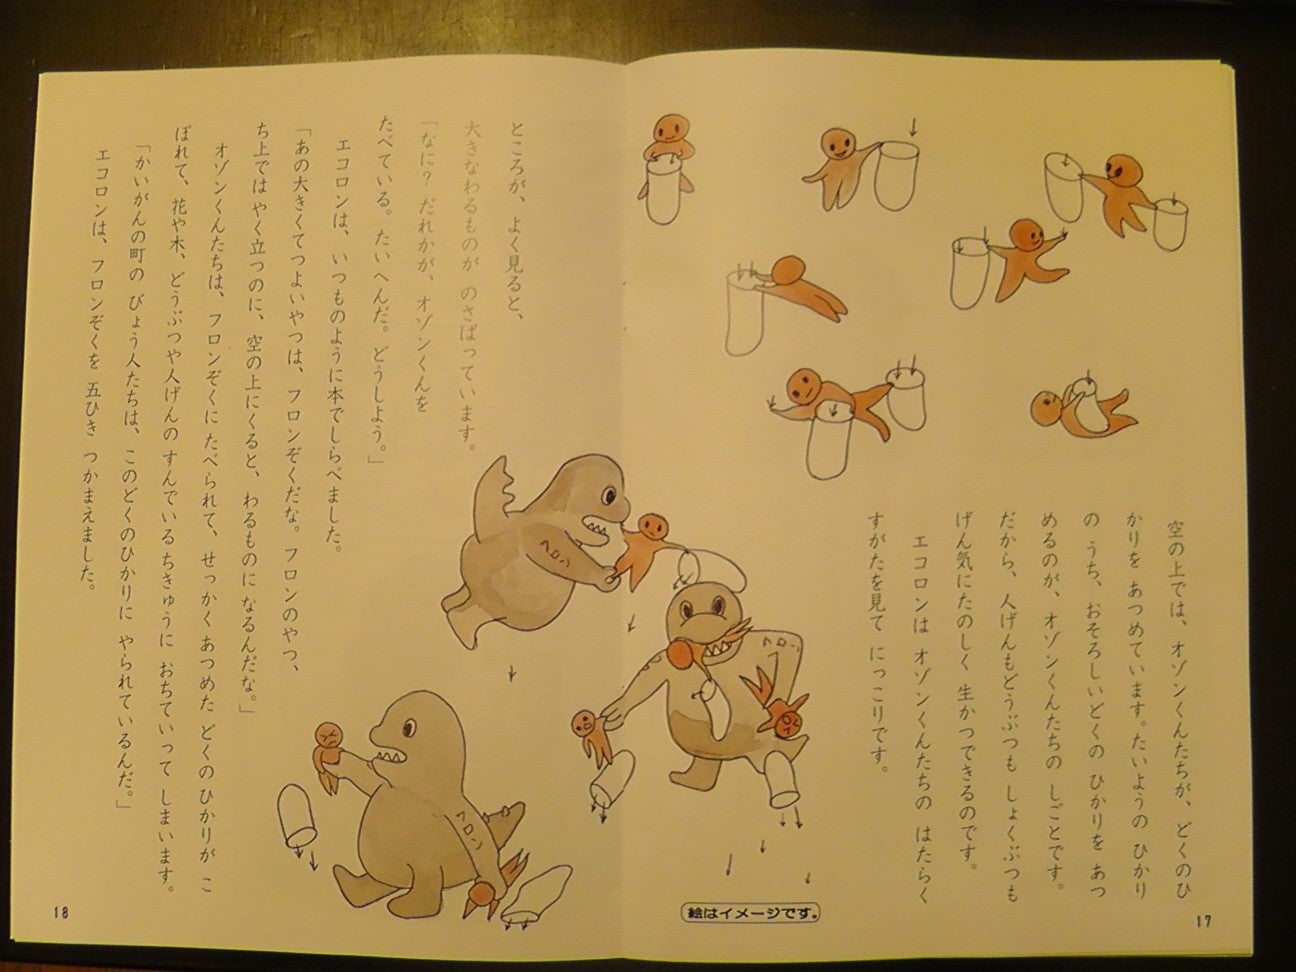 空の上では、オゾンくんたちが、どくのひ
かりを あつめています。たいようの ひかり
の うち、おそろしいどくの ひかりを あつ
めるのが、オゾンくんたちの しごとです。
だから、人げんもどうぶつも しょくぶつも
げん気にたのしく 生かつできるのです。
エコロンは オゾンくんたちの はたらく
すがたを見て にっこりです。
17
絵はイメージです。
ところが、よく見ると、
大きなわるものが のさばっています。
「なに? だれかが、オゾンくんを
たべている。たいへんだ。どうしよう。」
エコロンは、いつものように本でしらべました。
「あの大きくてつよいやつは、フロンぞくだな。フロンのやつ、
ち上ではやく立つのに、空の上にくると、わるものに なるんだな。」
オゾンくんたちは、フロンぞくに たべられて、せっかく あつめた どくのひかりが こ
ぼれて、花や木、どうぶつや人げんの すんでいる ちきゅうに おちていって しまいます。
「かいがんの町の びょう人たちは、このどくのひかりに やられているんだ。」
エコロンは、フロンぞくを 五ひき つかまえました。
18